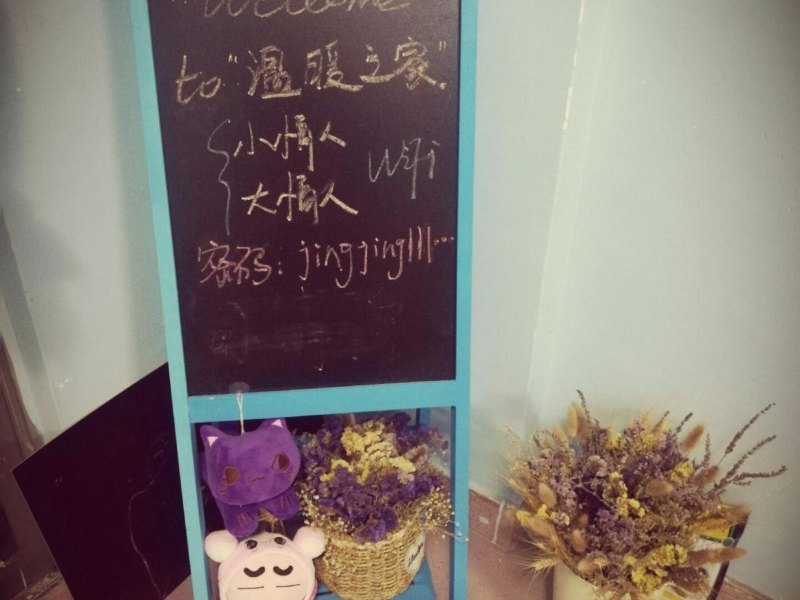 Welcome
to "温暖之家".
小情人
大情人
Wifi
密码: jingjing111...